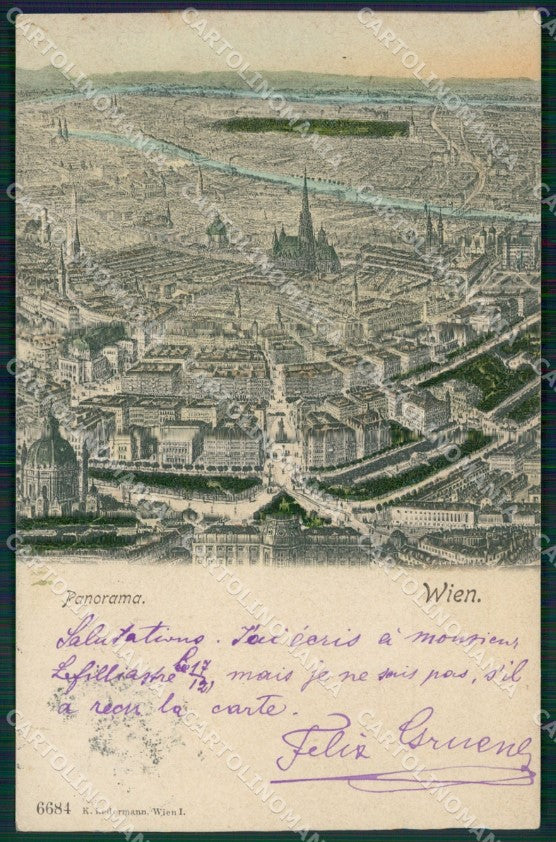 Panorama.
Wien.
Salutations. J'ai écris à monsieur
Lefilliastre le 17/12, mais je ne sais pas, s'il
a reçu la carte.
Felix Gruene
6684 K. Ledermann. Wien I.
CARTOLINOMANIA